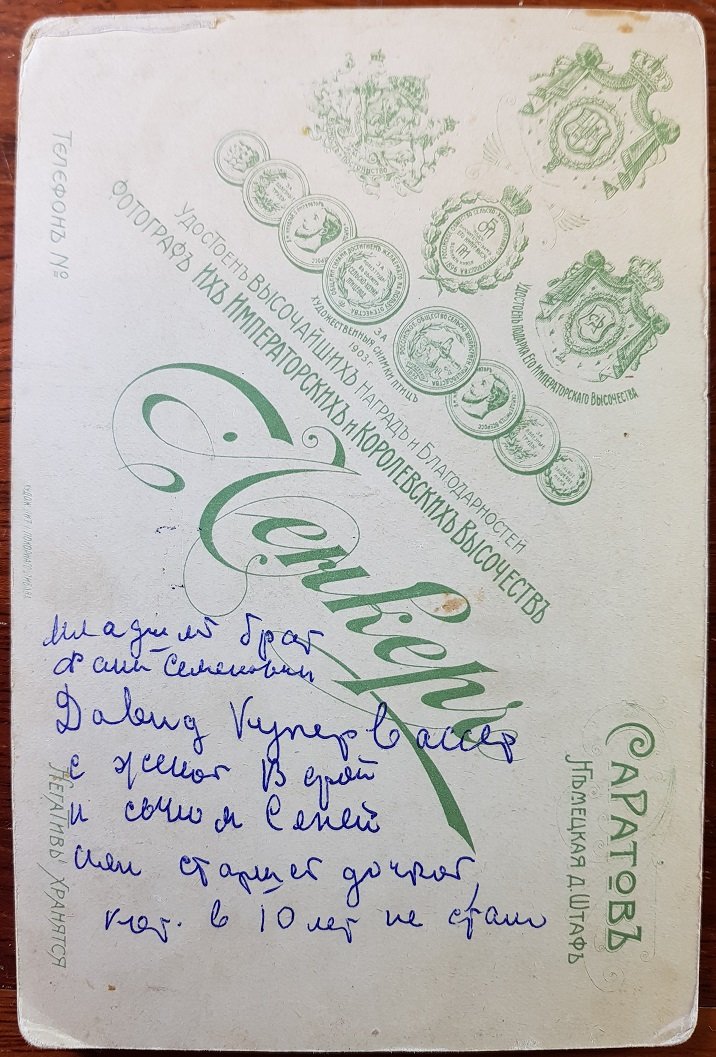 Удостоенъ Высочайшихъ Наградъ и Благодарностей
Фотографъ Ихъ Императорскихъ и Королевскихъ Высочествъ
За
художественныя снимки птицъ
1903 г.
Удостоенъ подарка Его Императорскаго Высочества
Хенкеръ
Телефонъ №
Саратовъ
Нѣмецкая д. Штафъ
Негативы хранятся
младший брат
Фани Семеновны
Давид Купервассер
с женой Верой
и сыном Сеней
или старшей дочкой,
кот. в 10 лет не стало